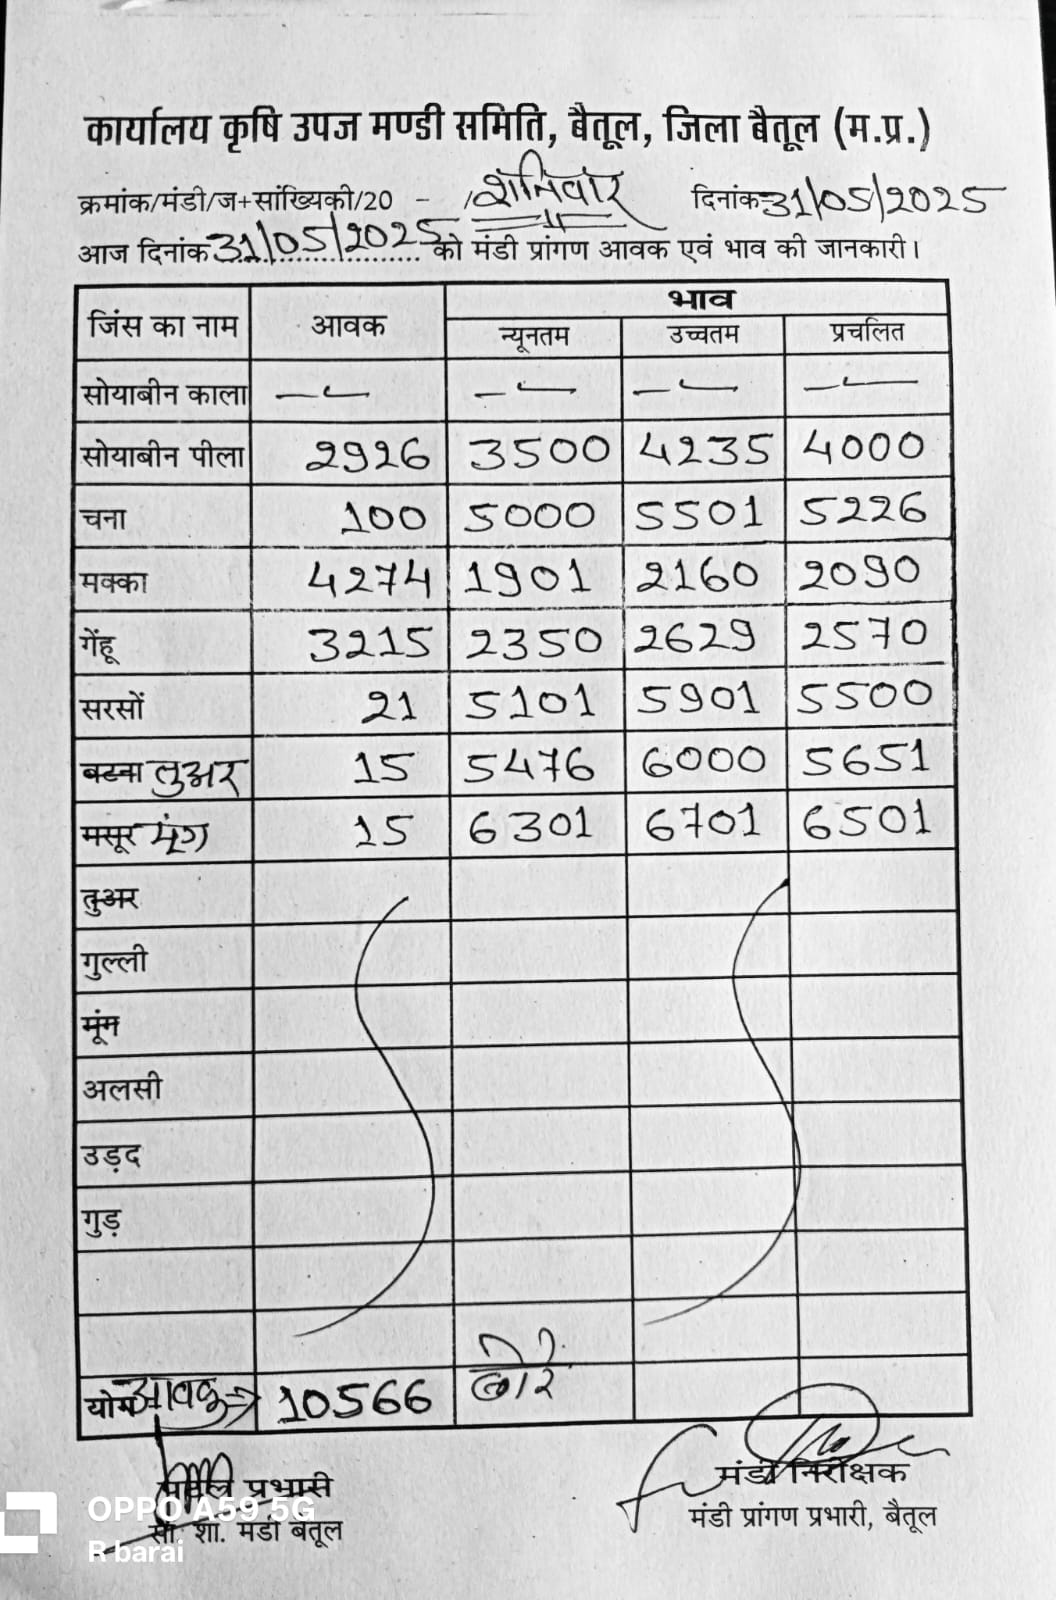 कार्यालय कृषि उपज मण्डी समिति, बैतूल, जिला बैतूल (म.प्र.)
क्रमांक/मंडी/ज+सांख्यिकी/20 - /शनिवार दिनांक 31/05/2025
आज दिनांक 31/05/2025 को मंडी प्रांगण आवक एवं भाव की जानकारी।
जिंस का नाम आवक भाव
न्यूनतम उच्चतम प्रचलित
सोयाबीन काला — — — —
सोयाबीन पीला 2926 3500 4235 4000
चना 100 5000 5501 5226
मक्का 4274 1901 2160 2090
गेंहू 3215 2350 2629 2570
सरसों 21 5101 5901 5500
बटना तुअर 15 5476 6000 5651
मसूर मूंग 15 6301 6701 6501
तुअर
गुल्ली
मूंग
अलसी
उड़द
गुड़
योग आवक → 10566 बोरे
प्रभारी मंडी निरीक्षक
सां. शा. मंडी बैतूल मंडी प्रांगण प्रभारी, बैतूल
OPPO A59 5G
R barai